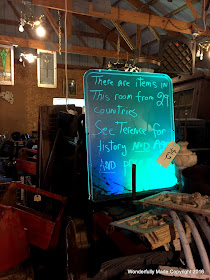 There are items in
This room from 29
countries.
See Terence for
history AND
AND
Wonderfully Made Copyright 2016